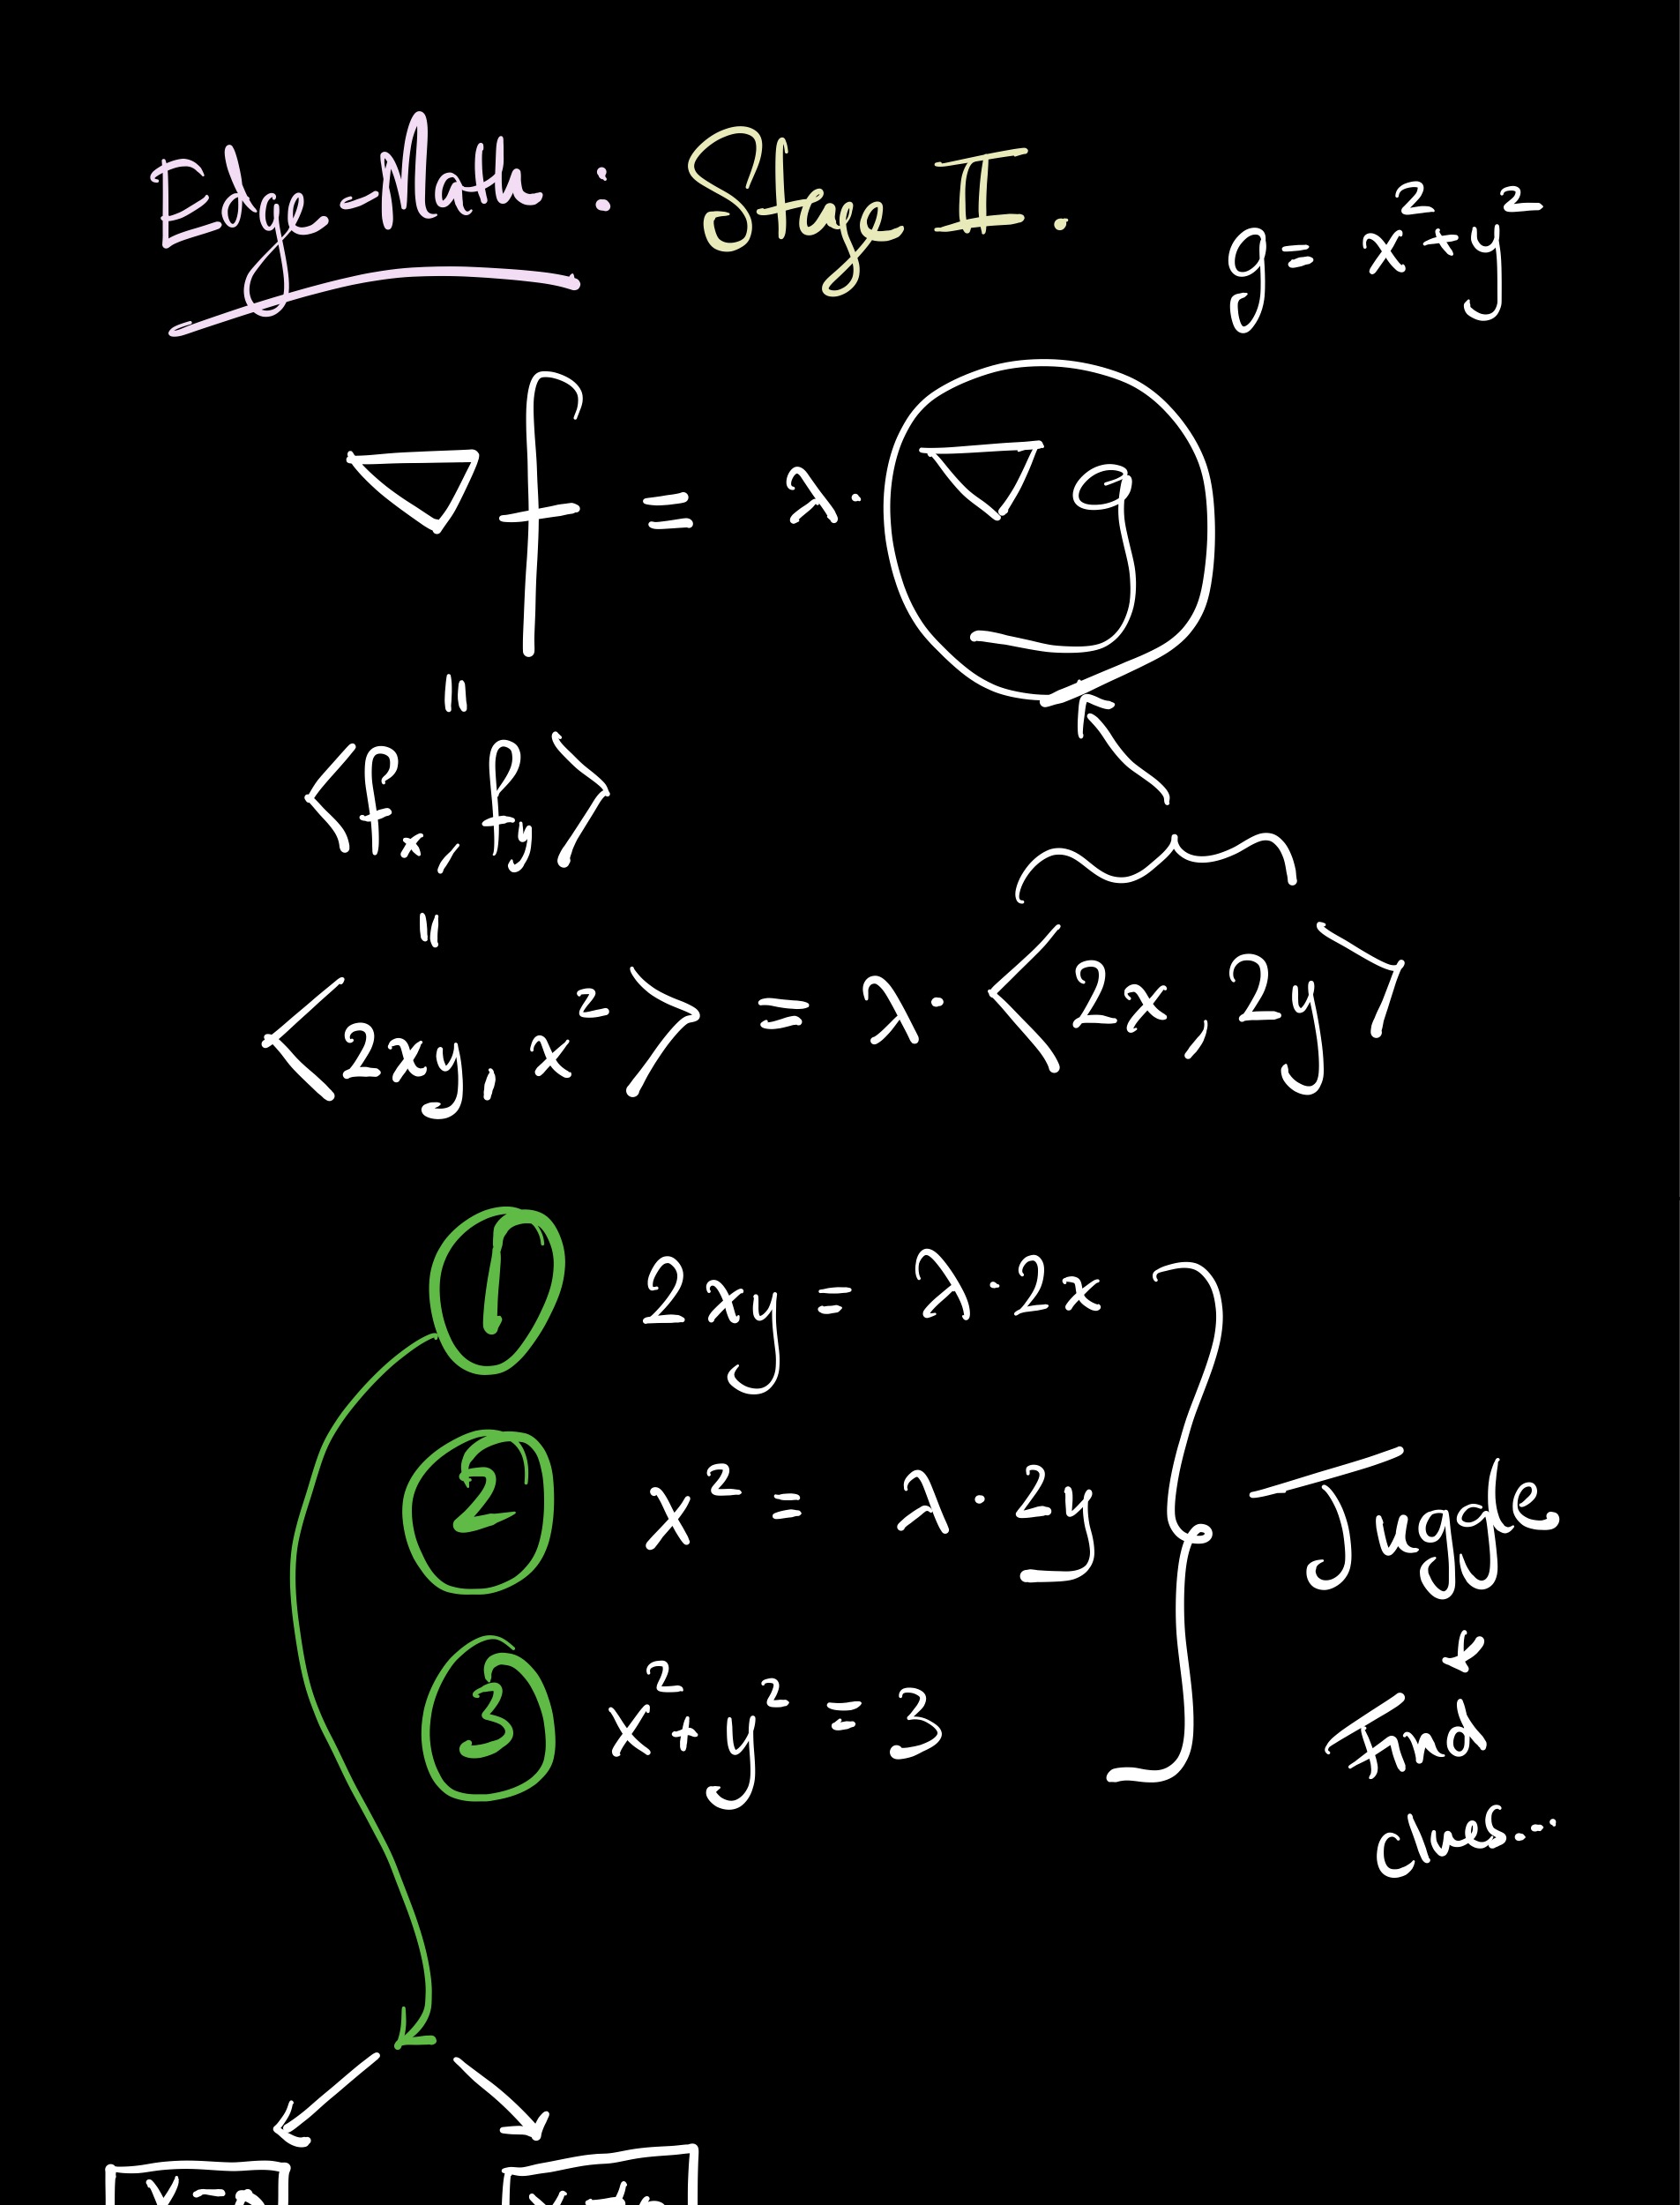 Edge-Math: Stage II.
g = x²+y²
∇f = λ· ∇g
=
<fx, fy>
=
<2xy, x²> = λ· <2x, 2y>
1 2xy = λ·2x
2 x² = λ·2y
Juggle
3 x²+y² = 3
Find
clues...